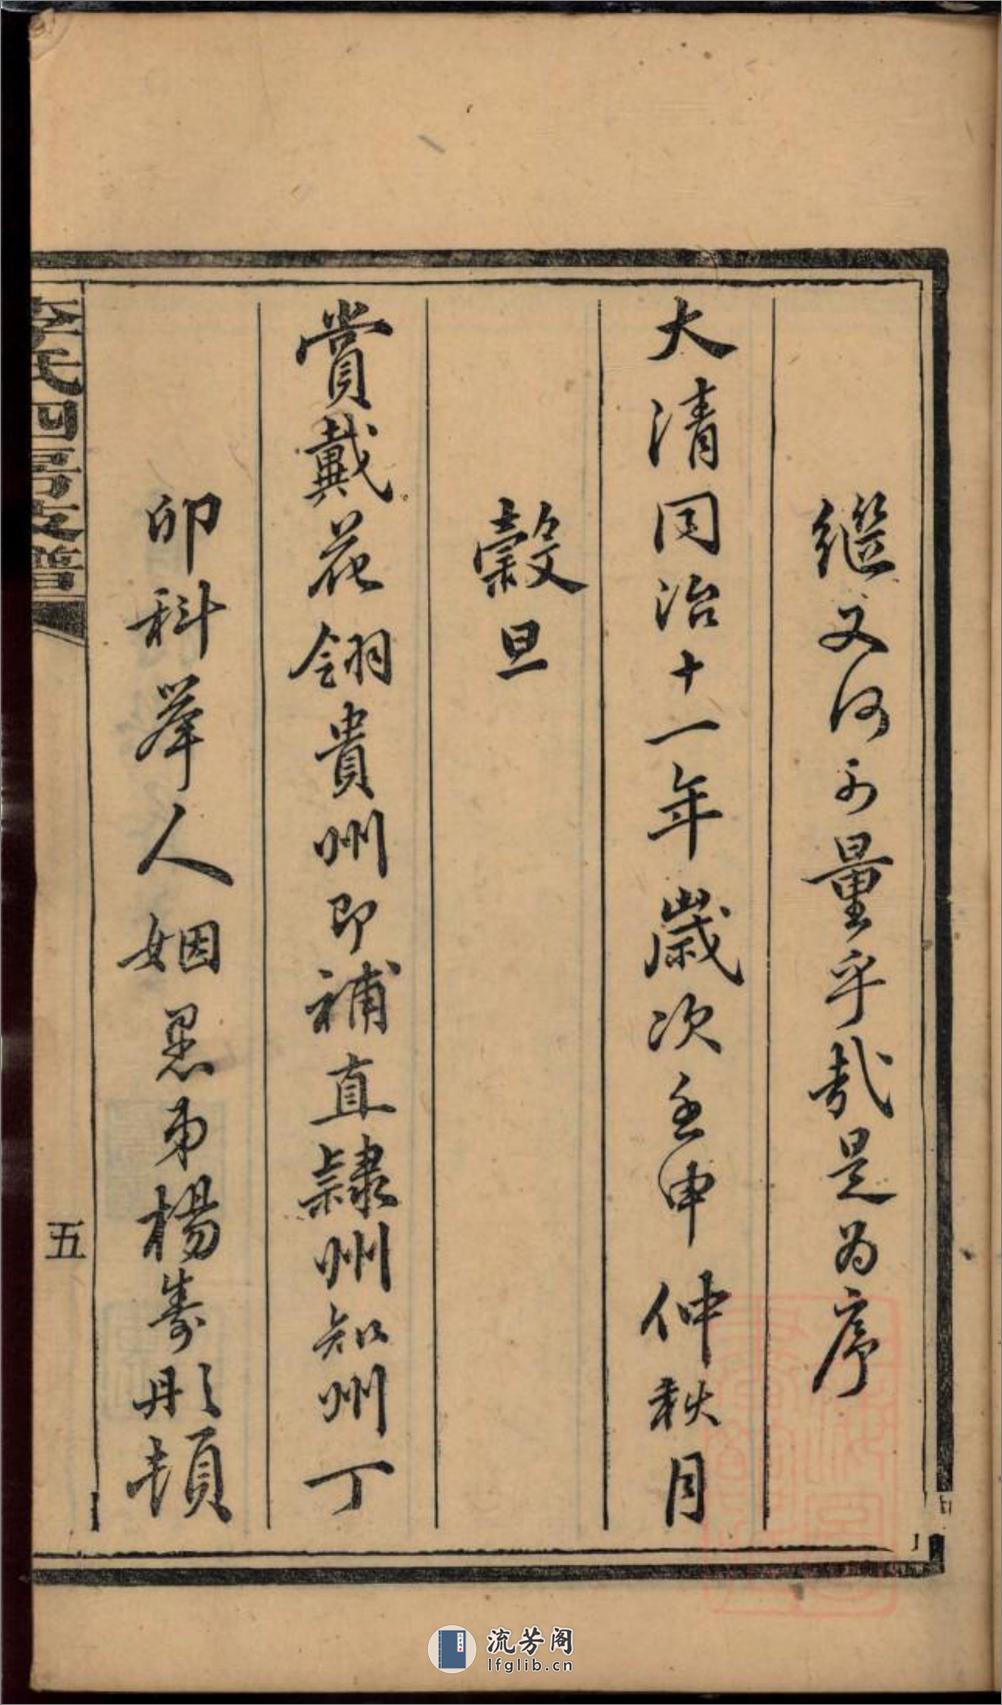 繼又何可量乎哉是為序
大清同治十一年歲次壬申仲秋月
穀旦
賞戴花翎貴州即補直隸州知州丁
卯科舉人姻愚弟楊壽彤頓
李氏四房支譜
五
流芳阁
lfglib.cn